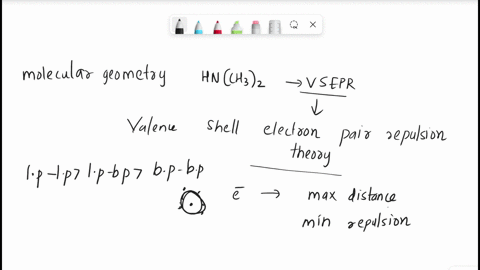 molecular geometry HN(CH3)2 → VSEPR
Valence shell electron pair repulsion
theory
l.p-l.p> l.p-b.p> b.p-b.p
e̅ → max distance
min repulsion